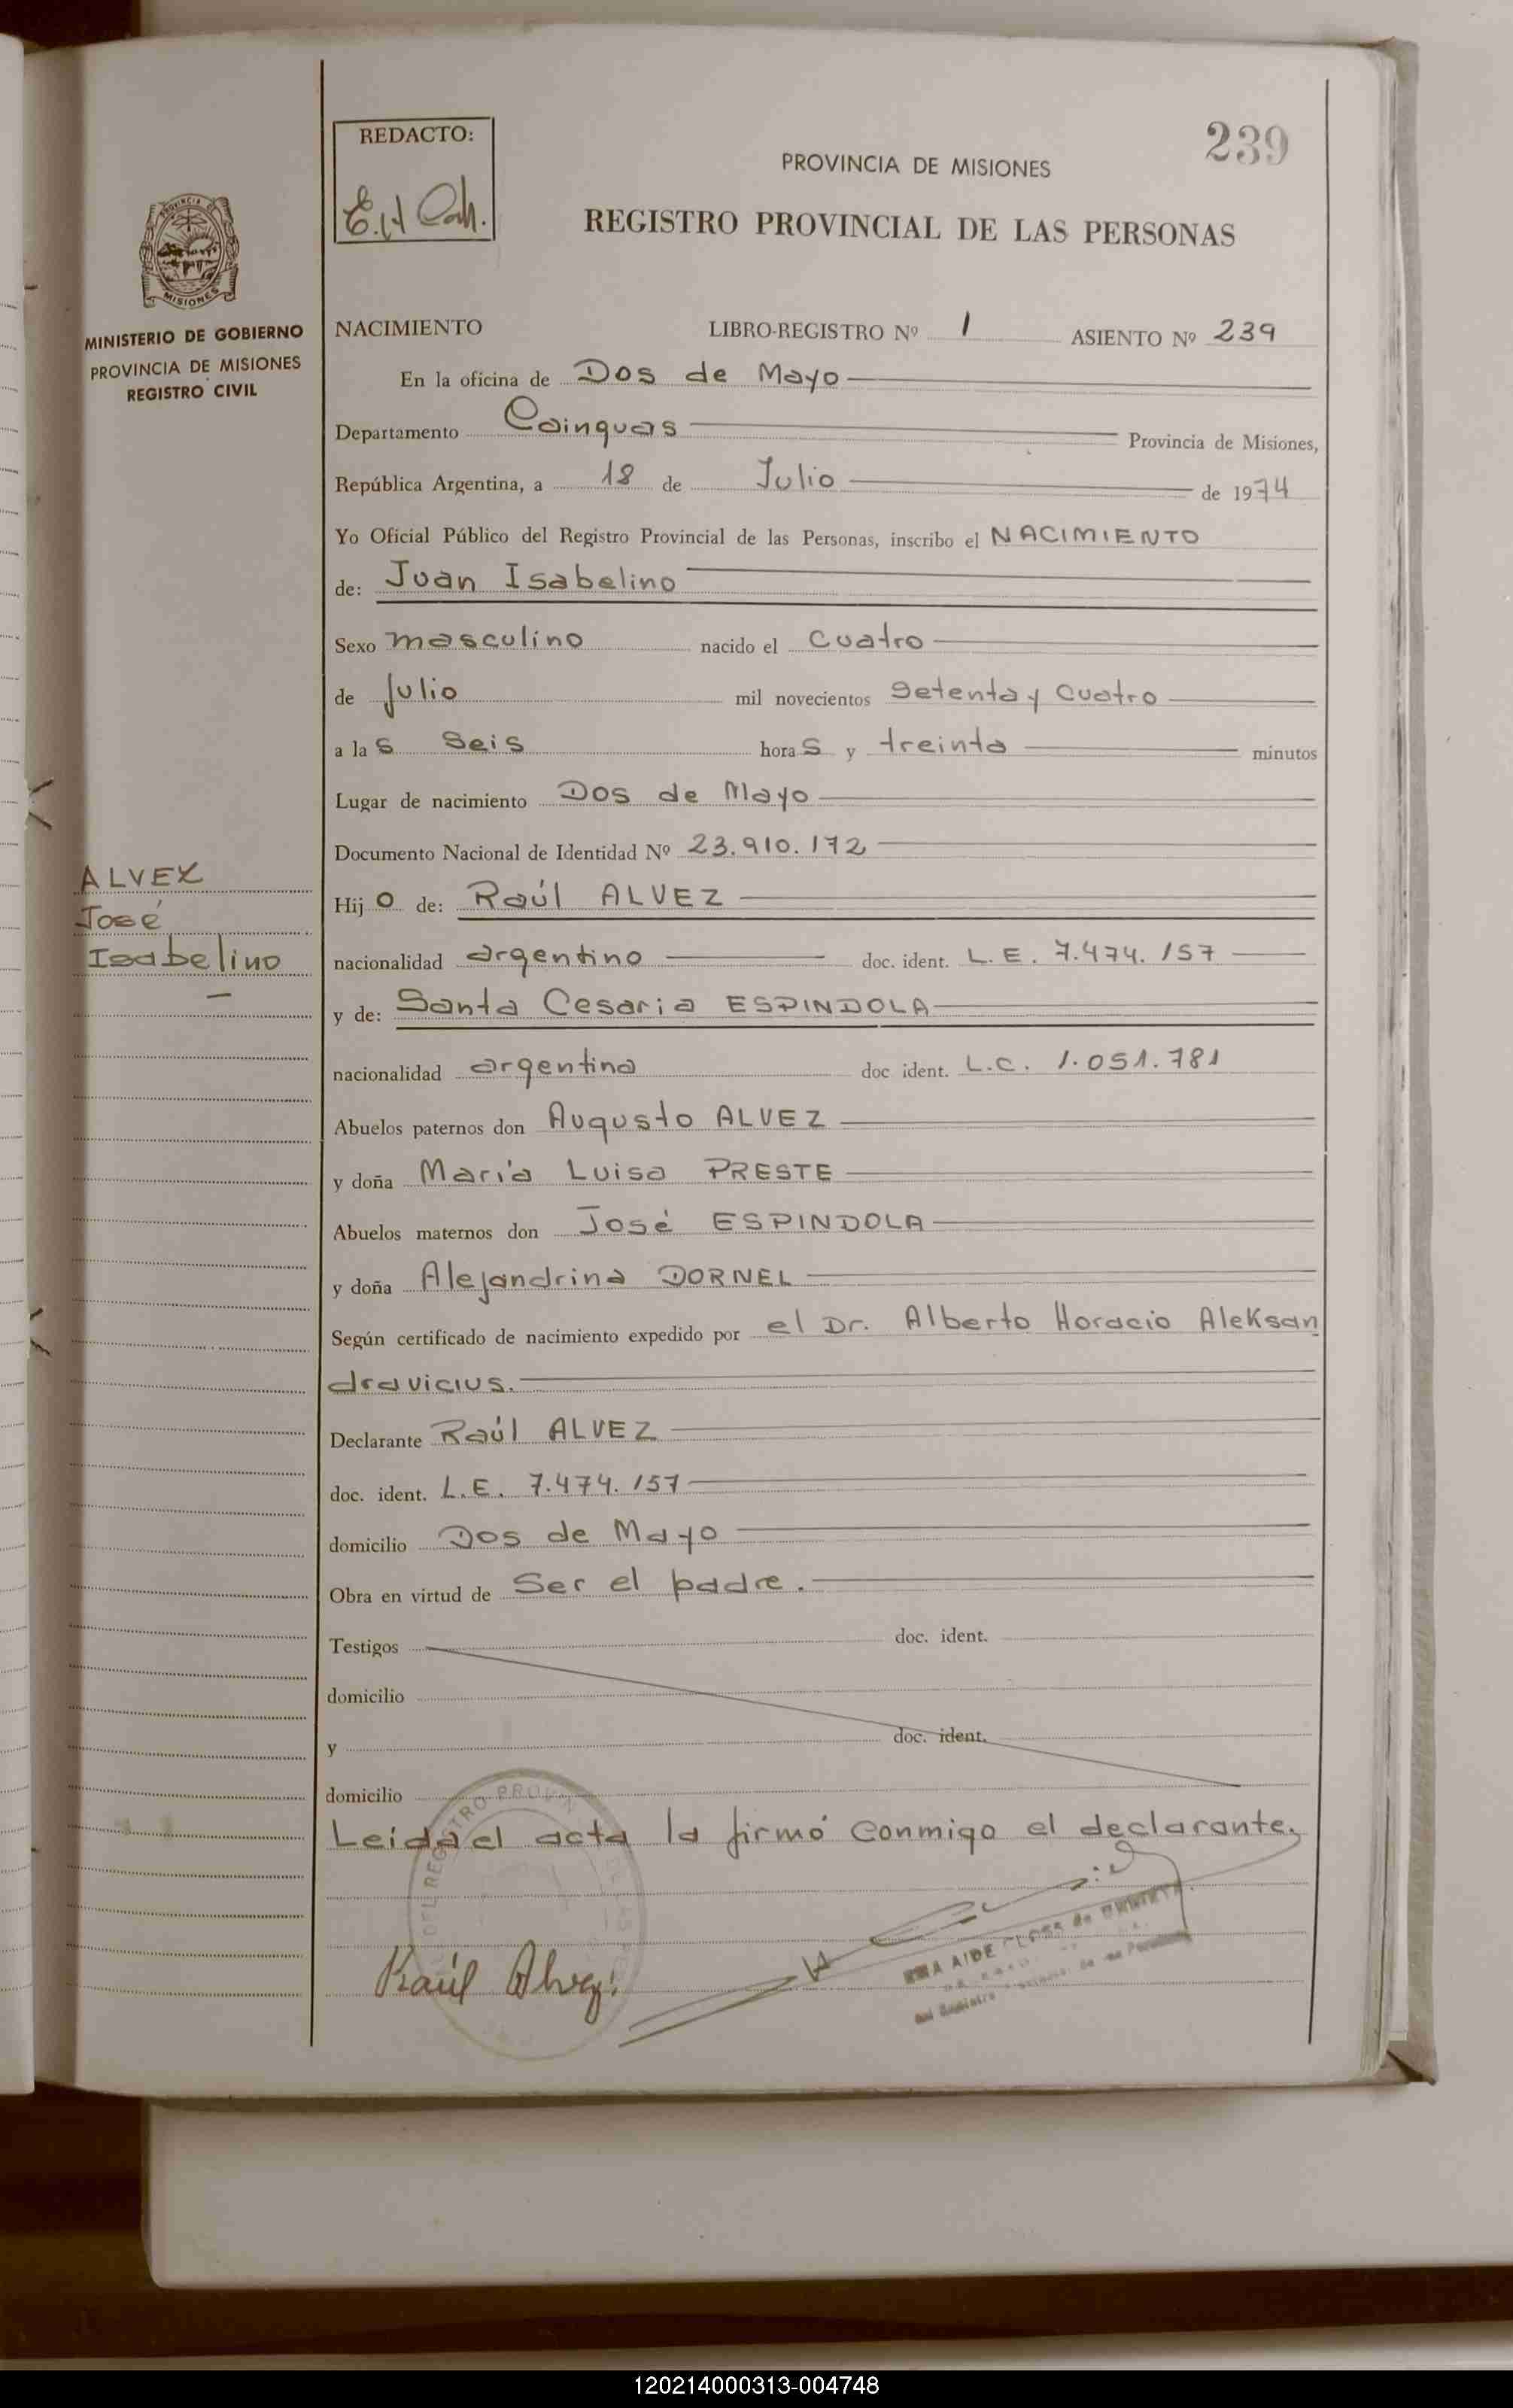 239
REDACTO:
PROVINCIA DE MISIONES
REGISTRO PROVINCIAL DE LAS PERSONAS
MISIONES
MINISTERIO DE GOBIERNO
PROVINCIA DE MISIONES
REGISTRO CIVIL
NACIMIENTO LIBRO-REGISTRO Nº 1 ASIENTO Nº 239
En la oficina de Dos de Mayo
Departamento Cainguas Provincia de Misiones,
República Argentina, a 18 de Julio de 1974
Yo Oficial Público del Registro Provincial de las Personas, inscribo el NACIMIENTO
de: Juan Isabelino
Sexo masculino nacido el cuatro
de Julio mil novecientos setenta y cuatro
a las seis horas y treinta minutos
Lugar de nacimiento Dos de Mayo
Documento Nacional de Identidad Nº 23.910.172
ALVEZ
José
Isabelino
Hijo de: Raúl ALVEZ
nacionalidad argentino doc. ident. L.E. 7.474.157
y de: Santa Cesaria ESPINDOLA
nacionalidad argentina doc ident. L.C. 1.051.781
Abuelos paternos don Augusto ALVEZ
y doña María Luisa PRESTE
Abuelos maternos don José ESPINDOLA
y doña Alejandrina DORNEL
Según certificado de nacimiento expedido por el Dr. Alberto Horacio Aleksan
dravicius.
Declarante Raúl ALVEZ
doc. ident. L.E. 7.474.157
domicilio Dos de Mayo
Obra en virtud de Ser el padre.
Testigos doc. ident.
domicilio
y doc. ident.
domicilio
Leida el acta la firmó conmigo el declarante.
Raúl Alvez
120214000313-004748